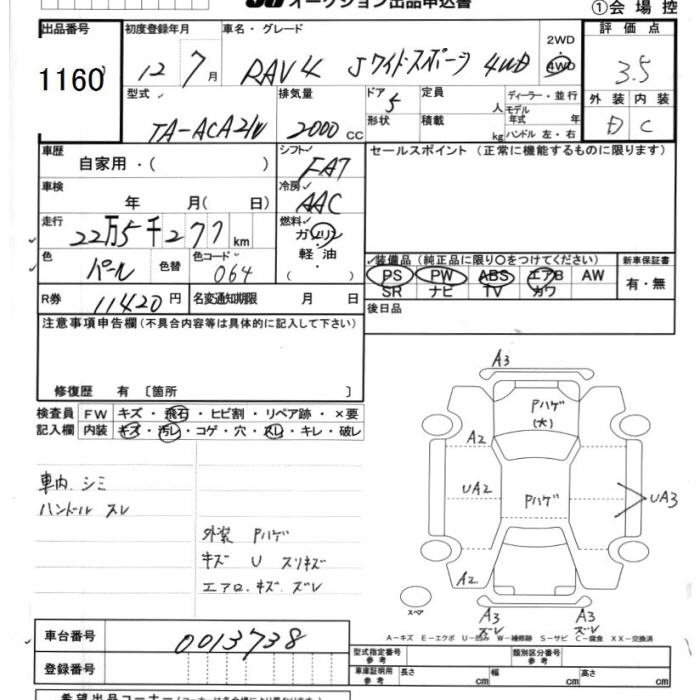 オークション出品申込書
①会場控
出品番号 初度登録年月 車名・グレード 2WD 評価点
1160 12 7月 RAV4 Jワイド・スポーツ 4WD 4WD 3.5
型式 排気量 ドア 定員 ディーラー・並行 外装 内装
5 人 モデル
年式 年
TA-ACA21W 2000CC 形状 積載 kg ハンドル 左・右 D C
車歴 シフト セールスポイント (正常に機能するものに限ります)
自家用・( ) FAT
車検 冷房
年 月( 日) AAC
走行 燃料
22万5千277km ガソリン
・
色 色替 色コード 軽油
パール 064 ( )
装備品 (純正品に限り〇をつけてください) 新車保証書
PS PW ABS エアB AW 有・無
SR ナビ TV カワ
R券 11420円 名変通知期限 月 日
後日品
注意事項申告欄 (不具合内容等は具体的に記入して下さい)
修復歴 有 〔箇所 〕
検査員 FW キズ・飛石・ヒビ割・リペア跡・×要
記入欄 内装 キズ・汚レ・コゲ・穴・スレ・キレ・破レ
車内 シミ
ハンドル スレ
外装 Pハゲ
キズ U スリキズ
エアロ.キズ.ズレ
A3
Pハゲ
(大)
A2
UA2 Pハゲ UA3
A2
スペア A3 A3
ズレ ズレ
A−キズ E−エクボ U−凹み W−補修跡 S−サビ C−腐食 XX−交換済
車台番号 0013738
登録番号
型式指定番号 類別区分番号
参考 参考
車庫証明用 長さ 幅 高さ
参考 cm cm cm
希望出品コーナー